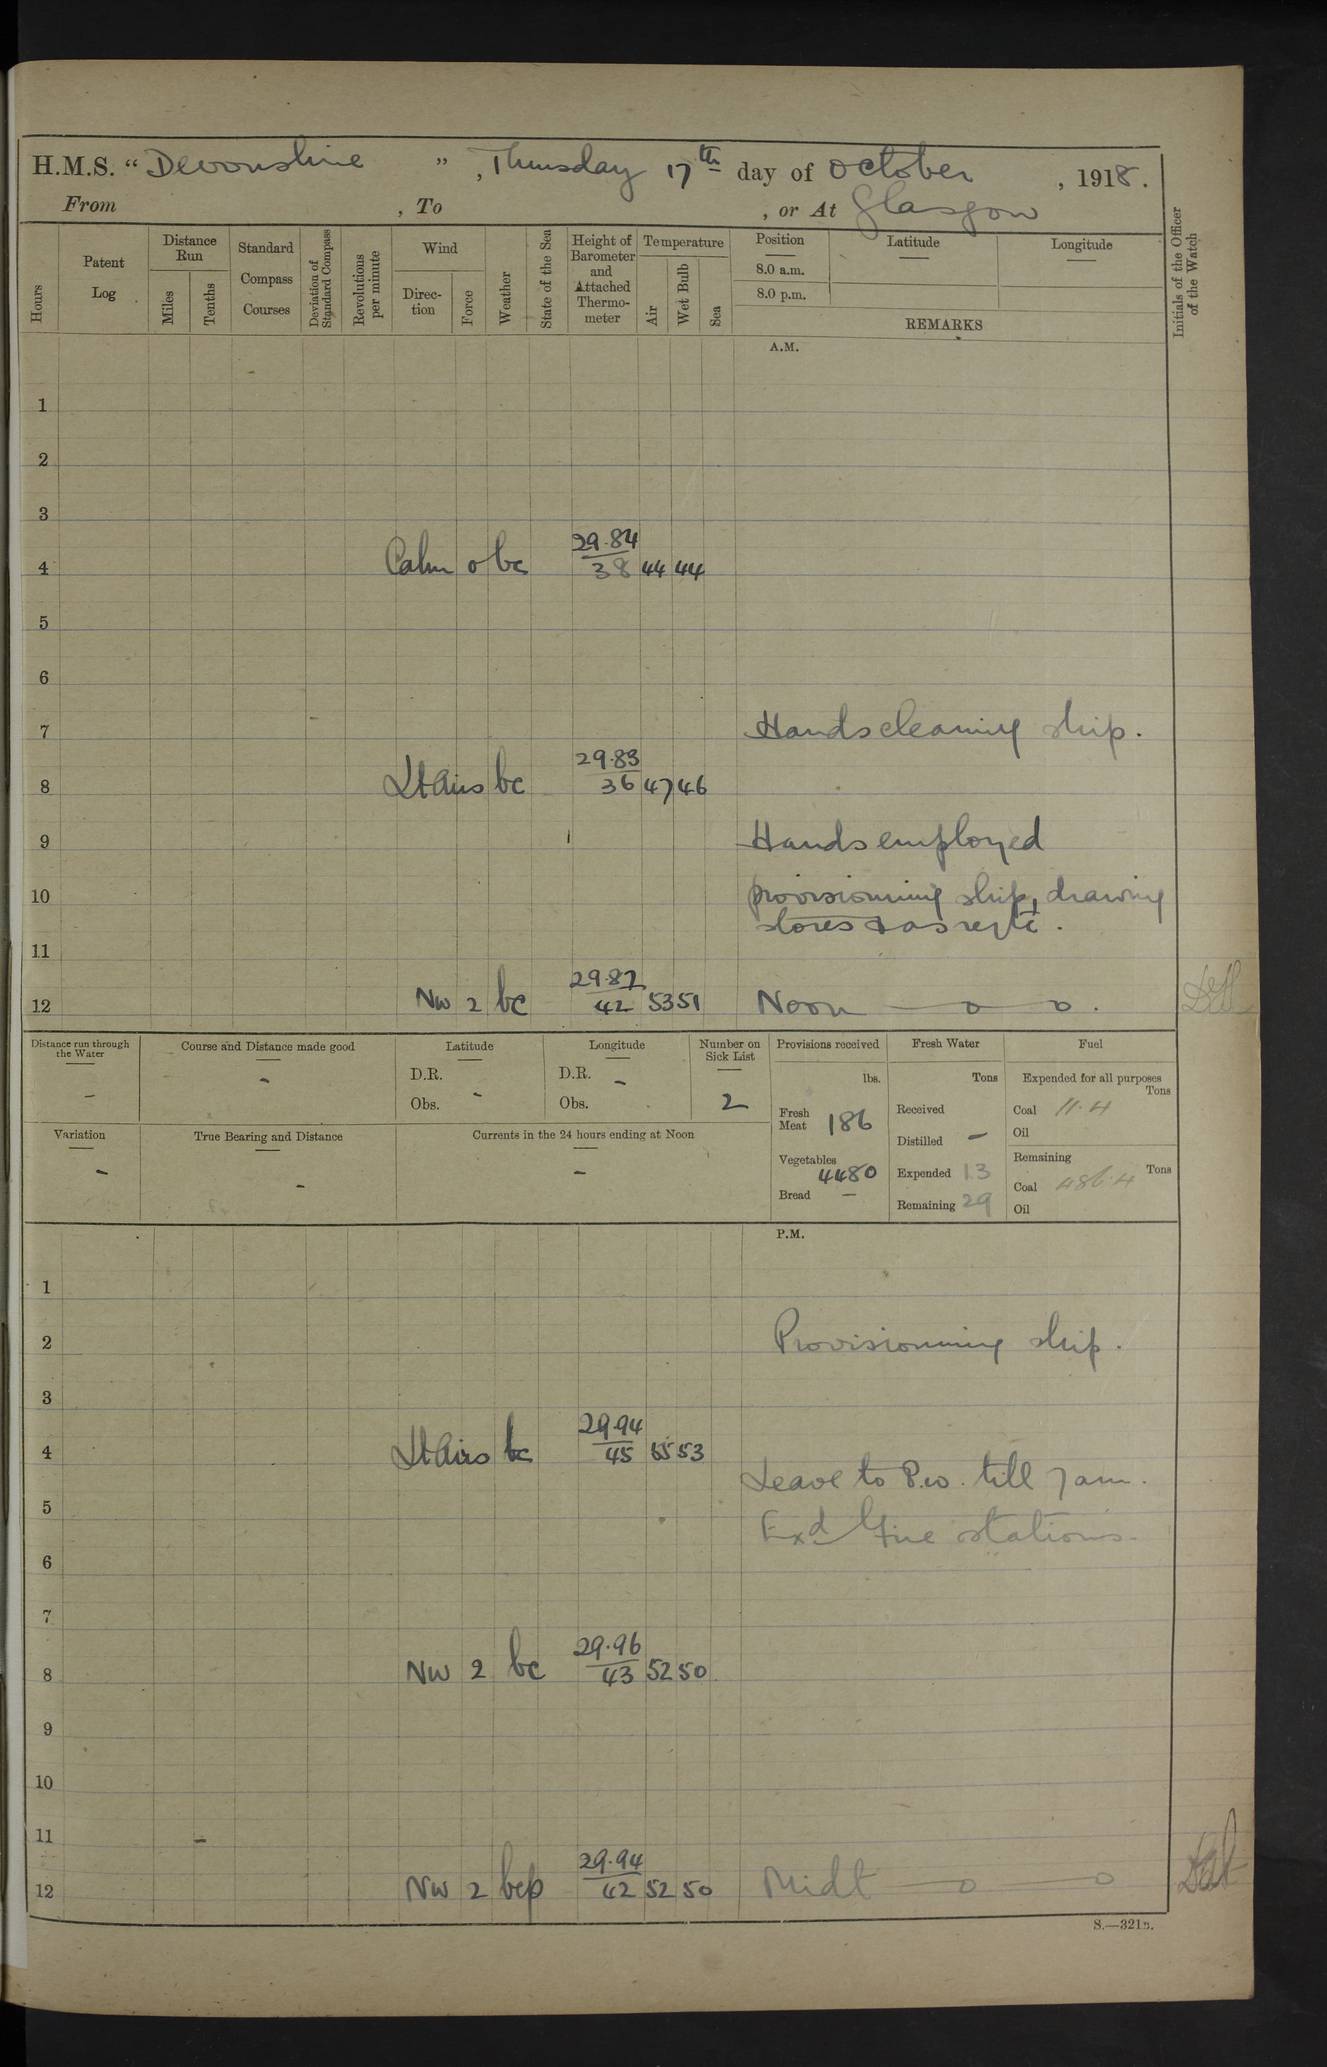 H.M.S. “ Devonshire ”, Thursday 17th day of October, 1918.
From , To , or At Glasgow
Hours
Patent Log
Distance Run
Miles
Tenths
Standard Compass Courses
Deviation of Standard Compass
Revolutions per minute
Wind
Direction
Force
Weather
State of the Sea
Height of Barometer and Attached Thermometer
Temperature
Air
Wet Bulb
Sea
Position
8.0 a.m.
8.0 p.m.
Latitude
Longitude
REMARKS
Initials of the Officer of the Watch
A.M.
1
2
3
29.84
4 Calm 0 bc 38 44 44
5
6
7 Hands cleaning ship.
29.83
8 Lt Airs bc 36 47 46
9 Hands employed
10 provisionning ship, drawing
stores & as reqte.
11
29.87
12 NW 2 bc 42 53 51 Noon — o — o.
Distance run through the Water -
Course and Distance made good -
Latitude
D.R.
Obs. -
Longitude
D.R. -
Obs.
Number on Sick List
2
Variation -
True Bearing and Distance -
Currents in the 24 hours ending at Noon -
Provisions received
lbs.
Fresh Meat 186
Vegetables 4480
Bread -
Fresh Water
Tons
Received
Distilled -
Expended 13
Remaining 29
Fuel
Expended for all purposes
Tons
Coal 11.4
Oil
Remaining
Tons
Coal 486.4
Oil
P.M.
1
2 Provisionning ship.
3
29.94
4 Lt Airs bc 45 55 53
Leave to P.W. till 7 am.
5
Exd Fire stations.
6
7
29.96
8 NW 2 bc 43 52 50
9
10
11
29.94
12 NW 2 bcp 42 52 50 Midt — o — o
S.—321B.